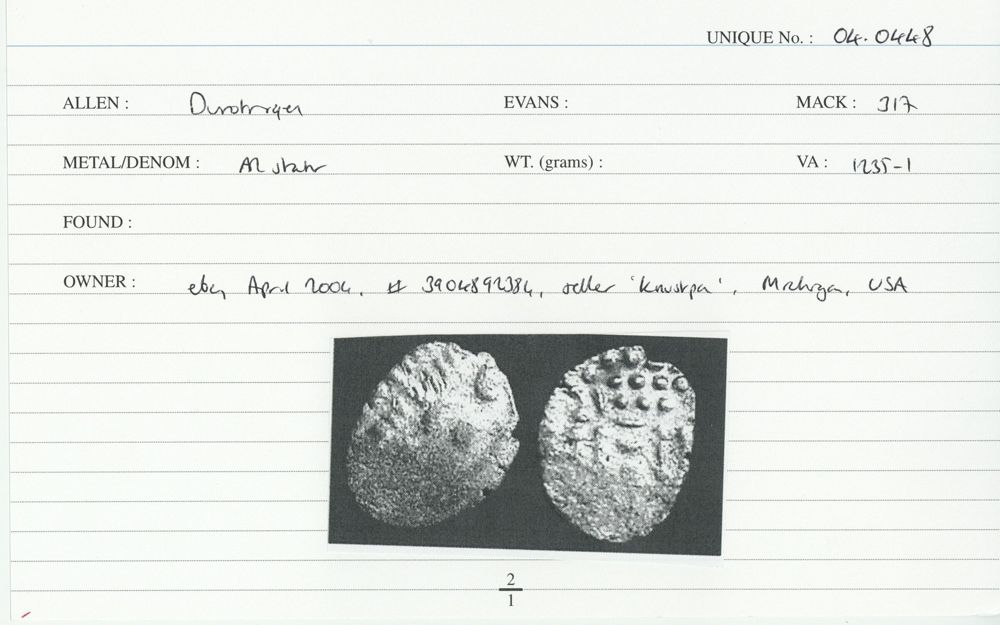 UNIQUE No. : 04.0448
ALLEN : Durotriges EVANS : MACK : 317
METAL/DENOM : AR stater WT. (grams) : VA : 1235-1
FOUND :
OWNER : ebay April 2004, # 3904892384, seller 'knustpa', Michigan, USA
2
1